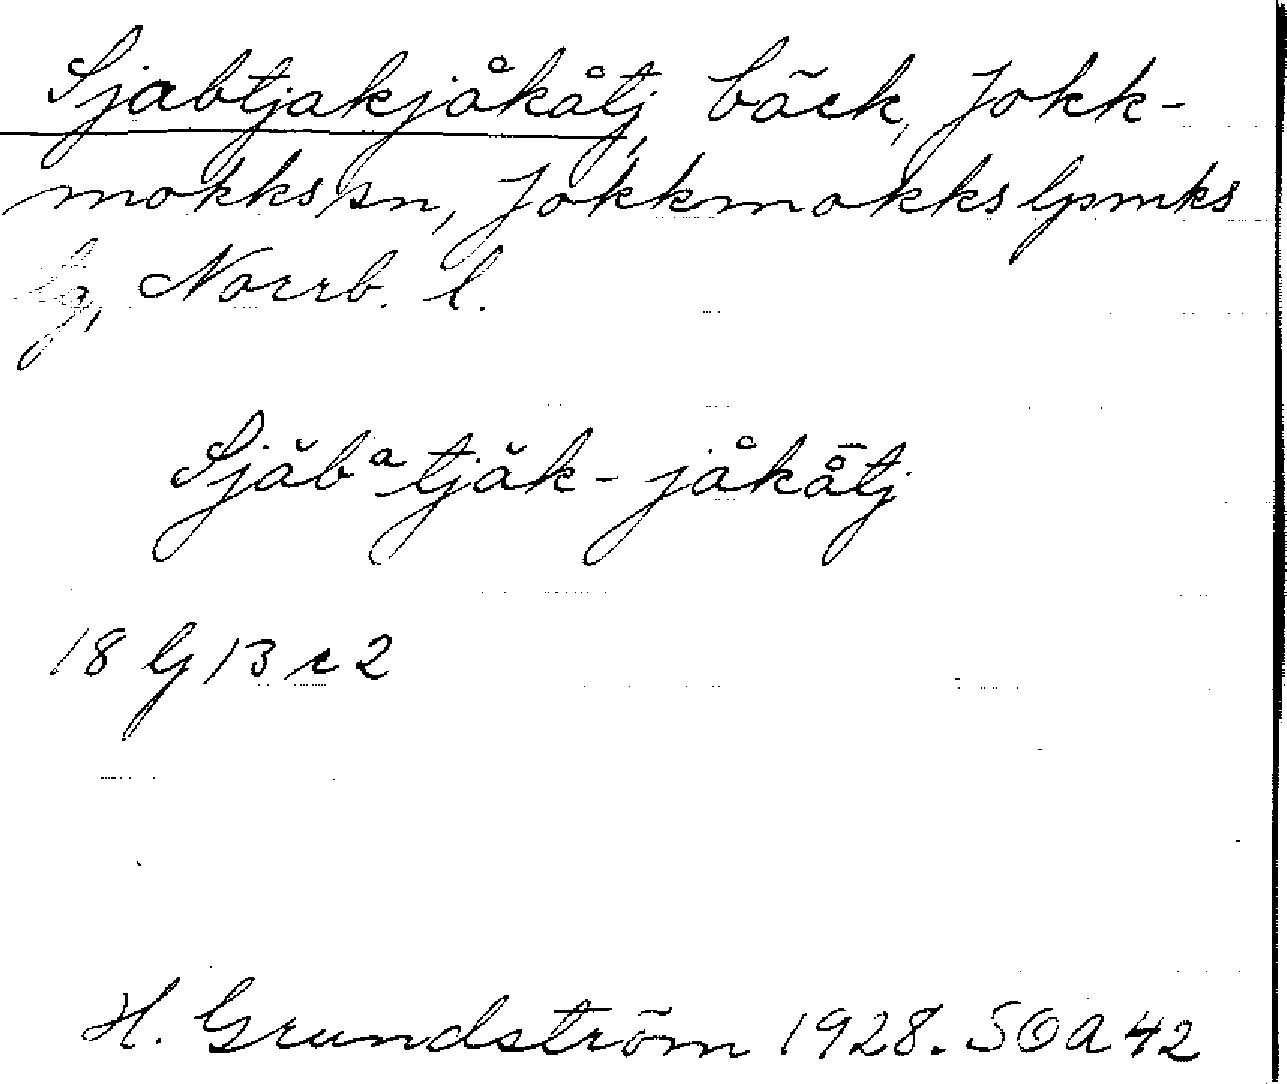 Sjabtjakjåkåtj, bäck, Jokk-
mokks sn, Jokkmokks lpmks
lg, Norrb. l.
Sjăbᵃtjăk-jåkå̄tj
18 G 13 c 2
H. Grundström 1928. SOA 42